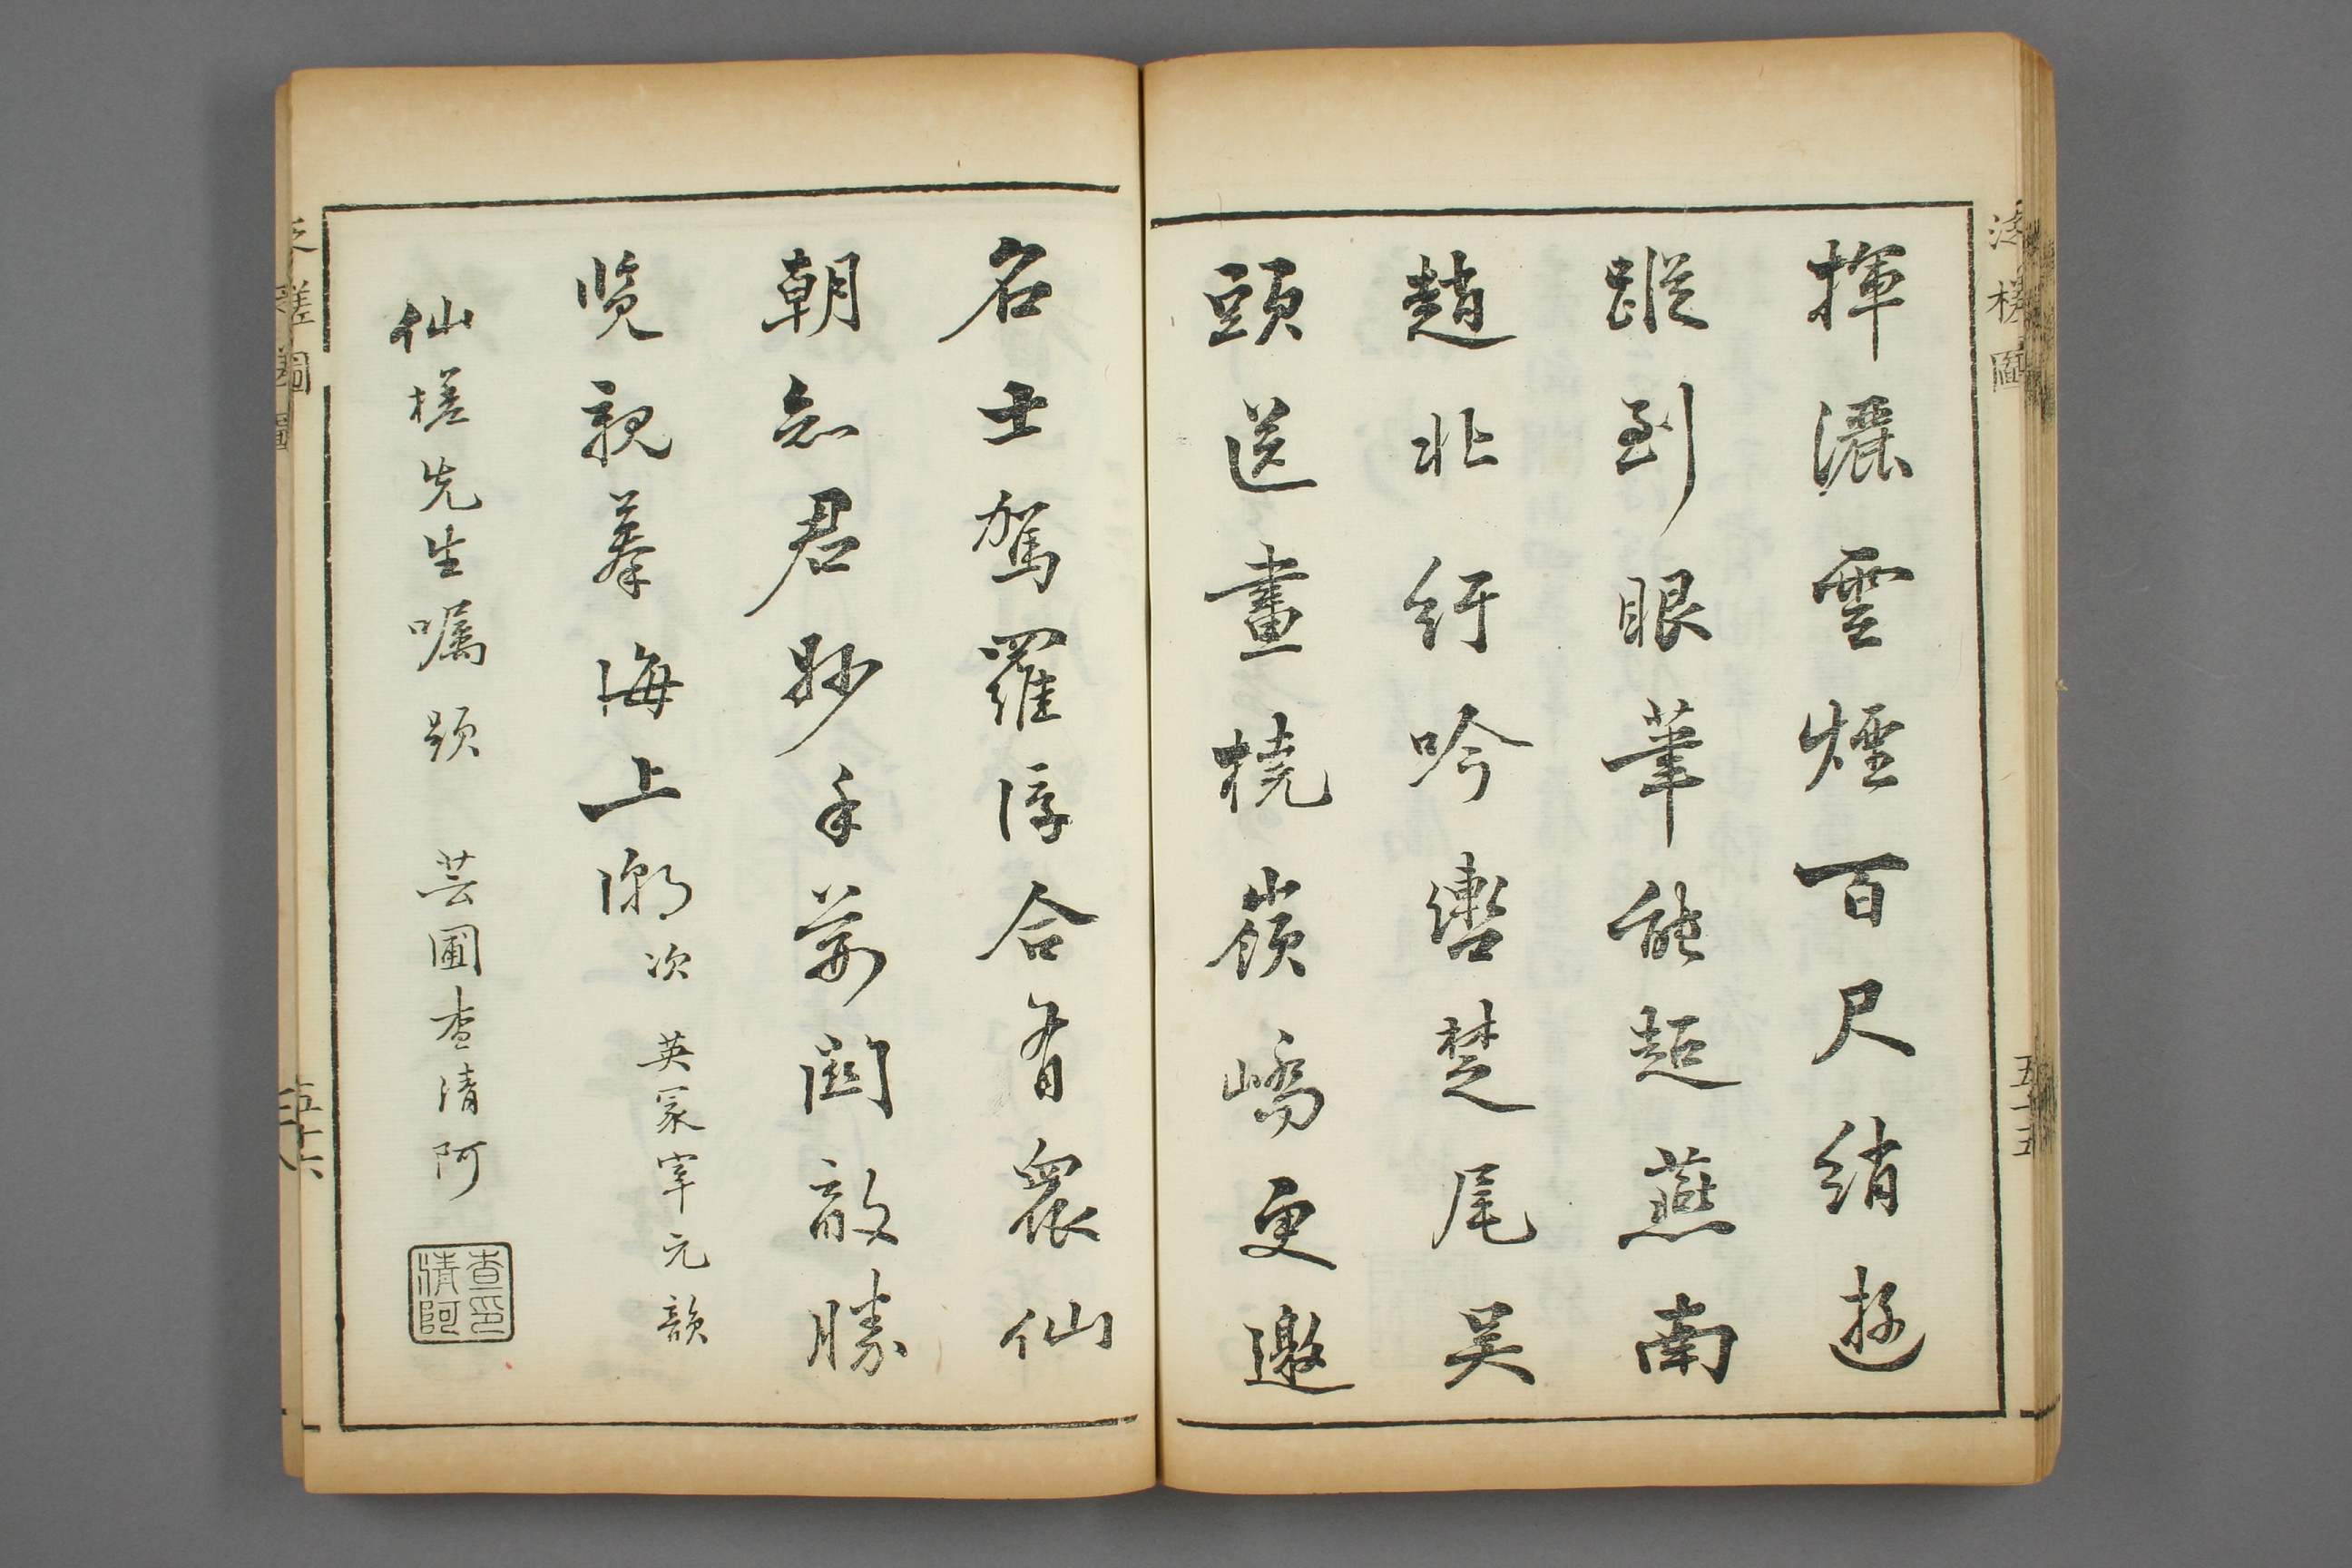 泛槎圖
五十五
揮灑雲煙百尺綃遊
蹤到眼筆能超燕南
趙北行吟轡楚尾吳
頭送畫橈嶺嶠更邀
名士駕羅浮合有衆仙
朝知君妙手前開敵勝
覽親摹海上潮次 英冢宰元韻
仙槎先生囑題 芸圃查清阿
查清阿印
泛槎圖
五十六